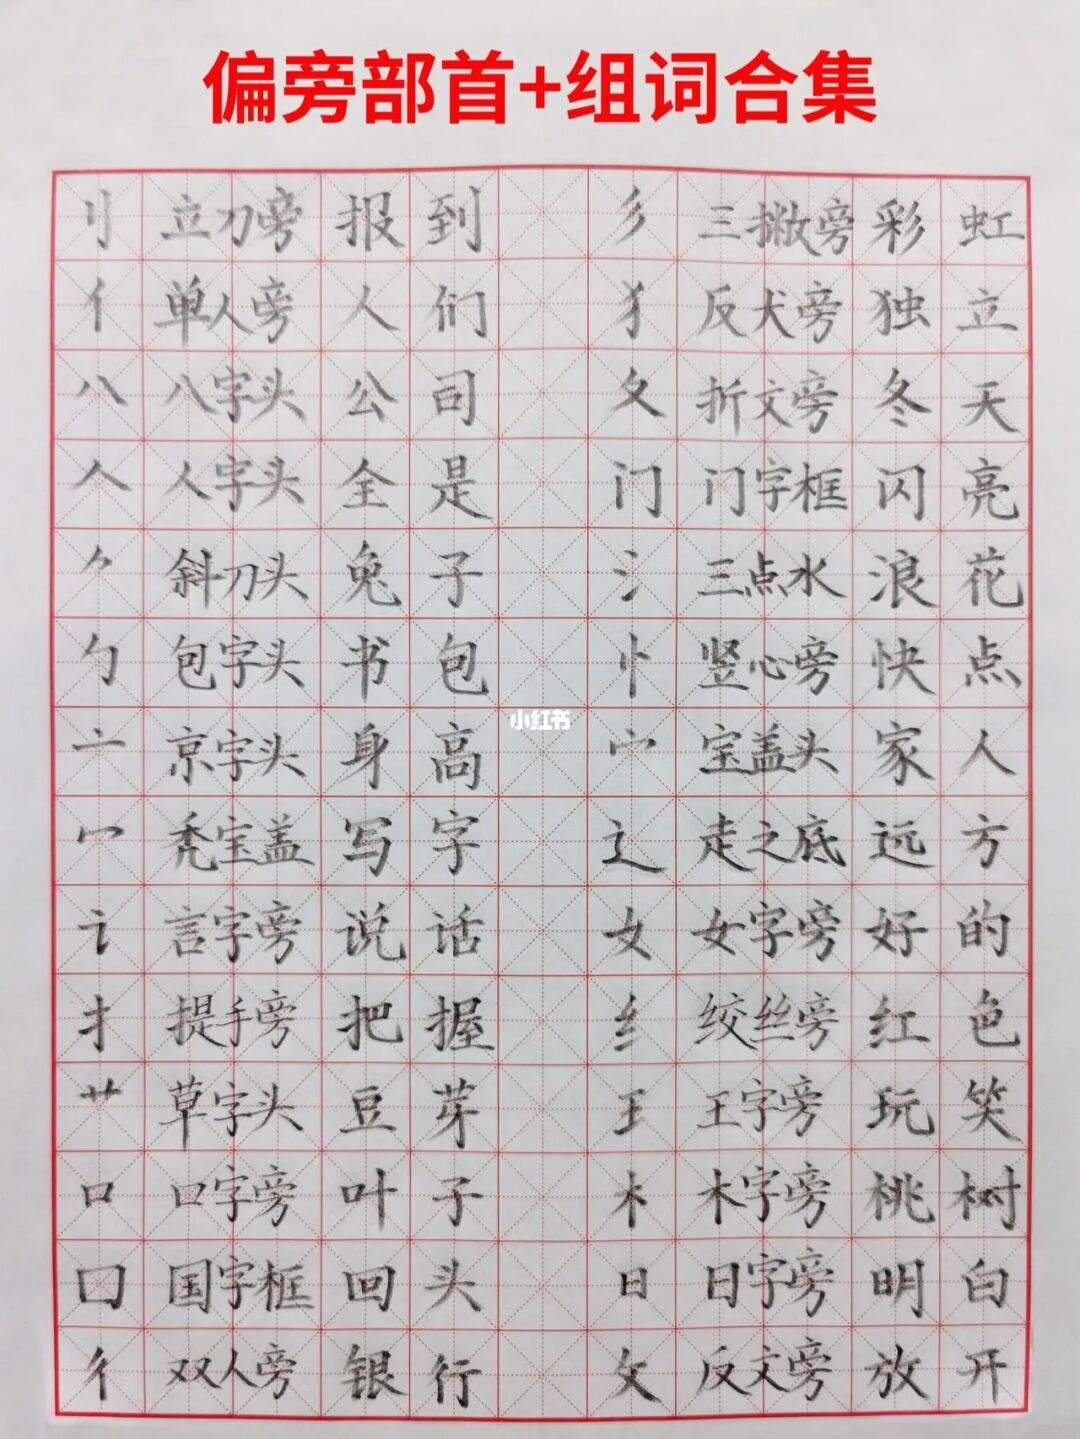 偏旁部首+组词合集
刂 立刀旁 报到 彡 三撇旁 彩虹
亻 单人旁 人们 犭 反犬旁 独立
八 八字头 公司 夂 折文旁 冬天
人 人字头 全是 门 门字框 闪亮
⺈ 斜刀头 兔子 氵 三点水 浪花
勹 包字头 书包 忄 竖心旁 快点
亠 京字头 身高 宀 宝盖头 家人
冖 秃宝盖 写字 辶 走之底 远方
讠 言字旁 说话 女 女字旁 好的
扌 提手旁 把握 纟 绞丝旁 红色
艹 草字头 豆芽 王 王字旁 玩笑
口 口字旁 叶子 木 木字旁 桃树
小红书
囗 国字框 回头 日 日字旁 明白
彳 双人旁 银行 攵 反文旁 放开